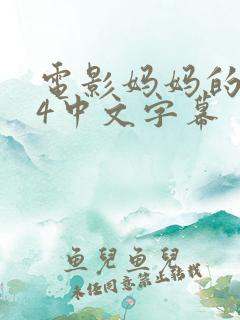 電影妈妈的
4中文字幕
鱼兒鱼兒
未经同意禁止转载